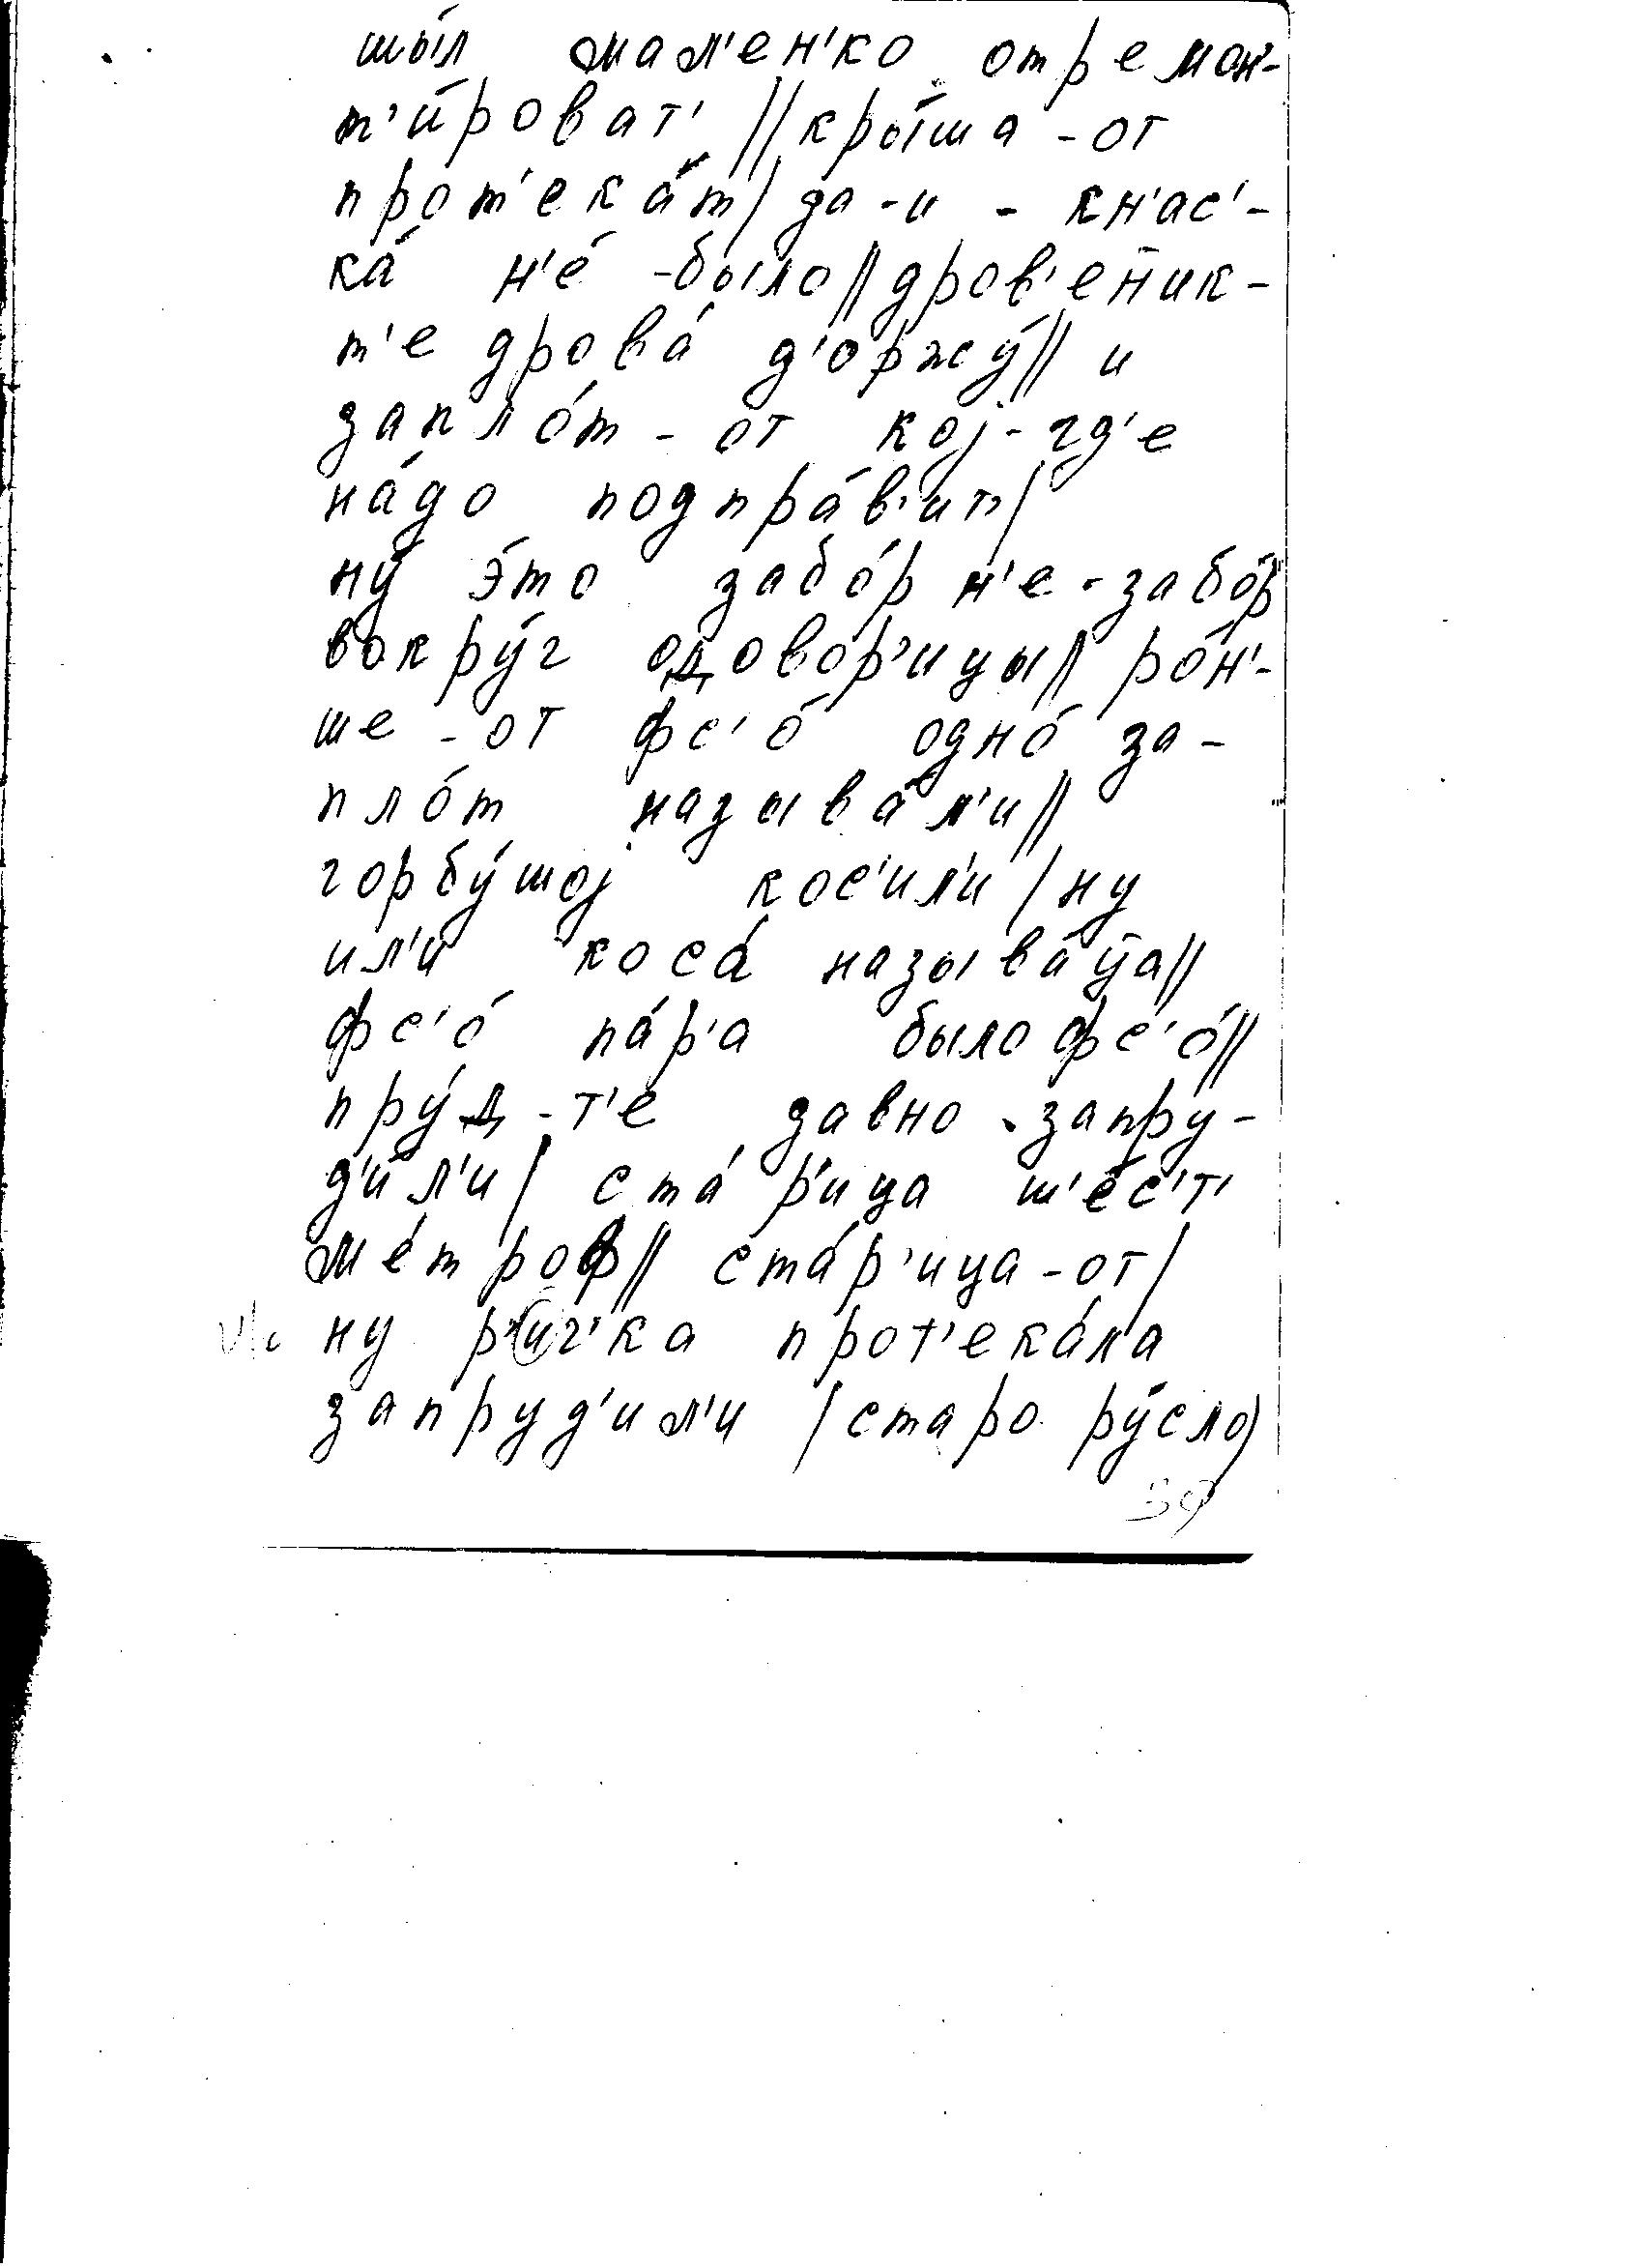 шы́л мал'ен'ко отремон-
т'и́роват' || кры́ша - от
прот'ека́т | да - и - кн'ас'-
ка́ н'е́ - было || дров'еник-
т'е дрова́ д'оржу́ || и
запло́т - от кој - гд'е
на́до подпра́в'ит' |
ну э́то забо́р н'е - забо́р
вокру́г одово́р'ицы || ро́н'-
ше - от фс'о́ одно́ за-
пло́т называ́л'и ||
горбу́шој кос'ил'и | ну
ил'и коса́ называ́ц̄а ||
фс'о́ па́р'а было фс'о́ ||
пру́д - т'е давно - запру-
д'и́л'и | ста́р'ица ш'е́с'т'
ме́троф || ста́р'ица - от |
ну р'ич'ка прот'ека́ла
запруд'ил'и | старо ру́сло |
59